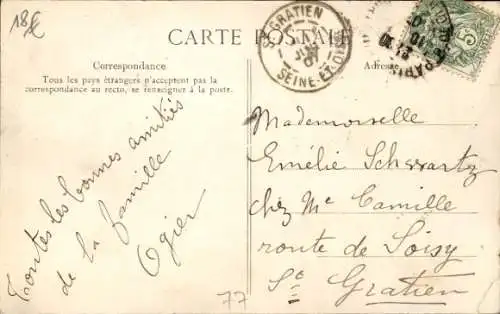 18€
CARTE POSTALE
ST GRATIEN
JUIL
07
SEINE-ET-OISE
PARIS
5
Correspondance
Tous les pays étrangers n'acceptent pas la
correspondance au recto, se renseigner à la poste.
Adresse
Toutes les bonnes amitiés
de la famille
Ogier
Mademoiselle
Emélie Schwartz
chez Me Camille
route de Soisy
St Gratien
77